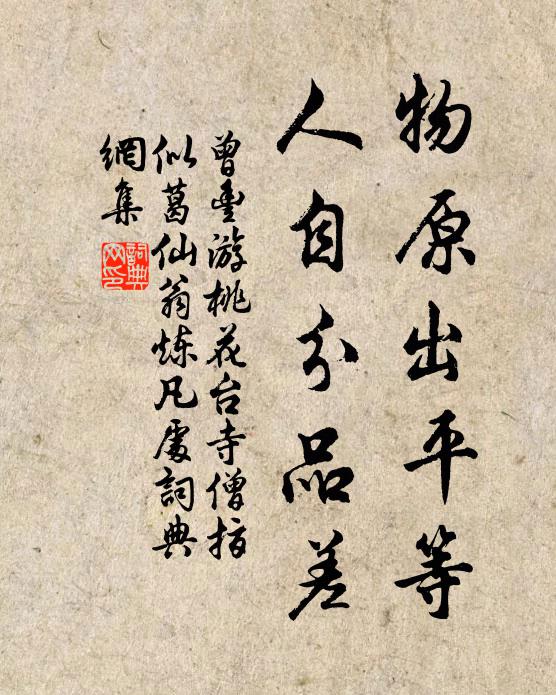 物原出平等
人自分品差
曾豐游桃花台寺僧指
似葛仙翁炼凡處詞典
網集
詞典網印